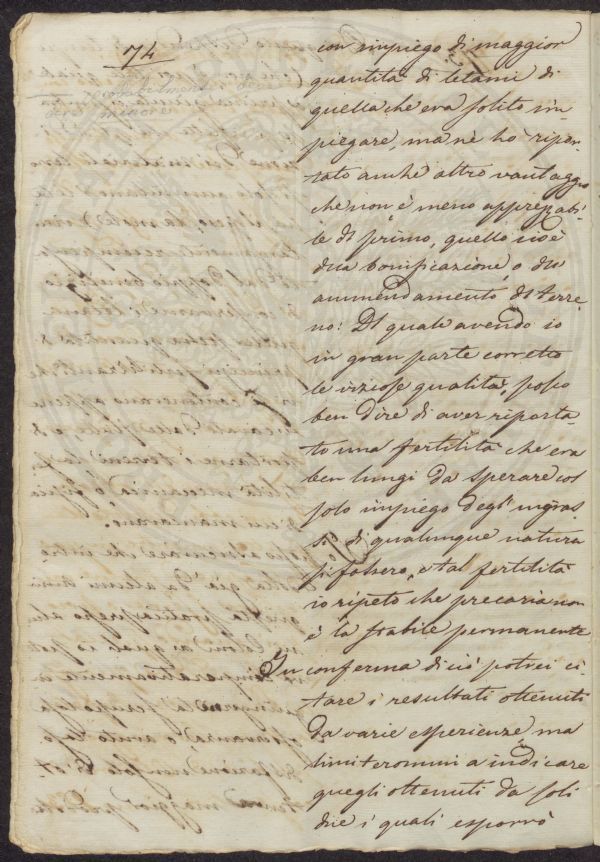 74
con impiego di maggior
quantità di letami di
quella che era solito im-
piegare, ma nè ho ripor-
tato anche altro vantaggio
che non è meno apprezzabi-
le di primo, quello cioè
dua bonificazione, o du
ammendamento di terre-
no: Del quale avendo io
in gran parte corretto
le viziose qualità, posso
ben dire di aver riporta-
to una fertilità che era
ben lungi da sperare col
solo impiego degl' ingras-
si di qualunque natura
si fossero, e tal fertilità
io ripeto, che precaria non
è la stabile permanente
In conferma di ciò potrei ci-
tare i resultati ottenuti
da varie esperienze, ma
limiterommi a indicare
quegli ottenuti da soli
due i quali esporrò